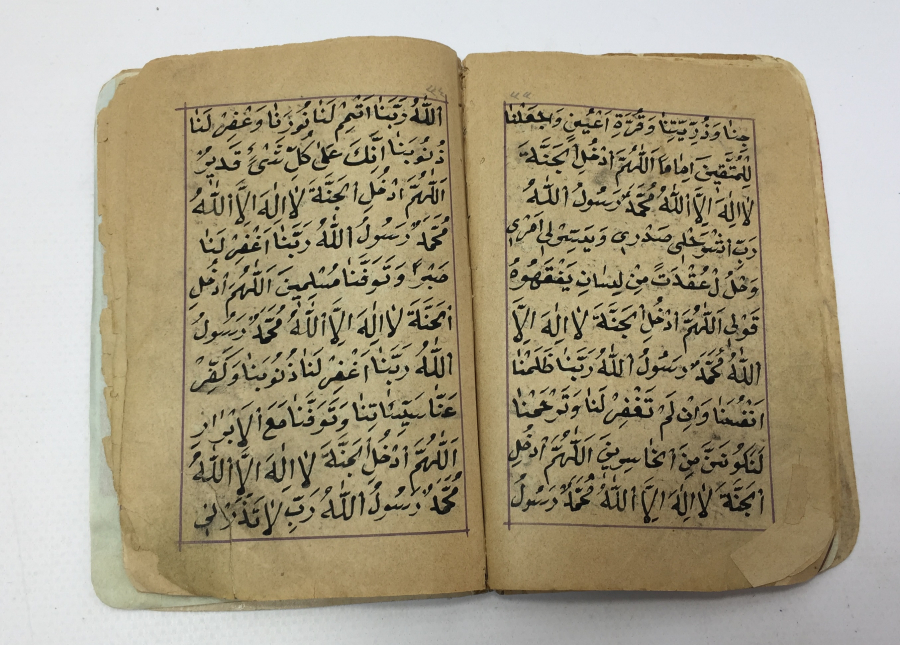 جِنَا وَذُرِّيَّتِنَا وَقُرَّةَ اَعْيُنٍ وَاجْعَلْنَا
لِلْمُتَّقِينَ اِمَامًا اَللّٰهُمَّ اَدْخُلِ الْجَنَّةَ
لَا اِلٰهَ اِلَّا اللّٰهُ مُحَمَّدٌ رَسُولُ اللّٰهُ
رَبِّ اشْرَحْلِي صَدْرِي وَيَسِّرْلِي اَمْرِي
وَحْلُلْ عُقْدَتً مِنْ لِسَانِ يَفْقَهُوهُ
قَوْلِي اَللّٰهُمَّ اَدْخُلِ الْجَنَّةَ لَا اِلٰهَ اِلَّا
اللّٰهُ مُحَمَّدٌ رَسُولُ اللّٰهُ رَبَّنَا ظَلَمْنَا
اَنْفُسَنَا وَاِنْ لَمْ تَغْفِرْ لَنَا وَتَرْحَمْنَا
لَنَكُونَنَّ مِنَ الْخَاسِرِينَ اَللّٰهُمَّ اَدْخُلِ
الْجَنَّةَ لَا اِلٰهَ اِلَّا اللّٰهُ مُحَمَّدٌ رَسُولُ
اللّٰهُ رَبَّنَا اَتْمِمْ لَنَا نُورَنَا وَغْفِرْ لَنَا
ذُنُوبَنَا اِنَّكَ عَلٰى كُلِّ شَيْءٍ قَدِيرٌ
اَللّٰهُمَّ اَدْخُلِ الْجَنَّةَ لَا اِلٰهَ اِلَّا اللّٰهُ
مُحَمَّدٌ رَسُولُ اللّٰهُ رَبَّنَا اغْفِرْ لَنَا
صَبْرًا وَتَوَفَّنَا مُسْلِمِينَ اَللّٰهُمَّ اَدْخُلِ
الْجَنَّةَ لَا اِلٰهَ اِلَّا اللّٰهُ مُحَمَّدٌ رَسُولُ
اللّٰهُ رَبَّنَا اغْفِرْ لَنَا ذُنُوبَنَا وَكَفِّرْ
عَنَّا سَيِّئَاتِنَا وَتَوَفَّنَا مَعَ الْاَبْرَارِ
اَللّٰهُمَّ اَدْخُلِ الْجَنَّةَ لَا اِلٰهَ اِلَّا اللّٰهُ
مُحَمَّدٌ رَسُولُ اللّٰهُ رَبِّ لَا تَذَرْنِي